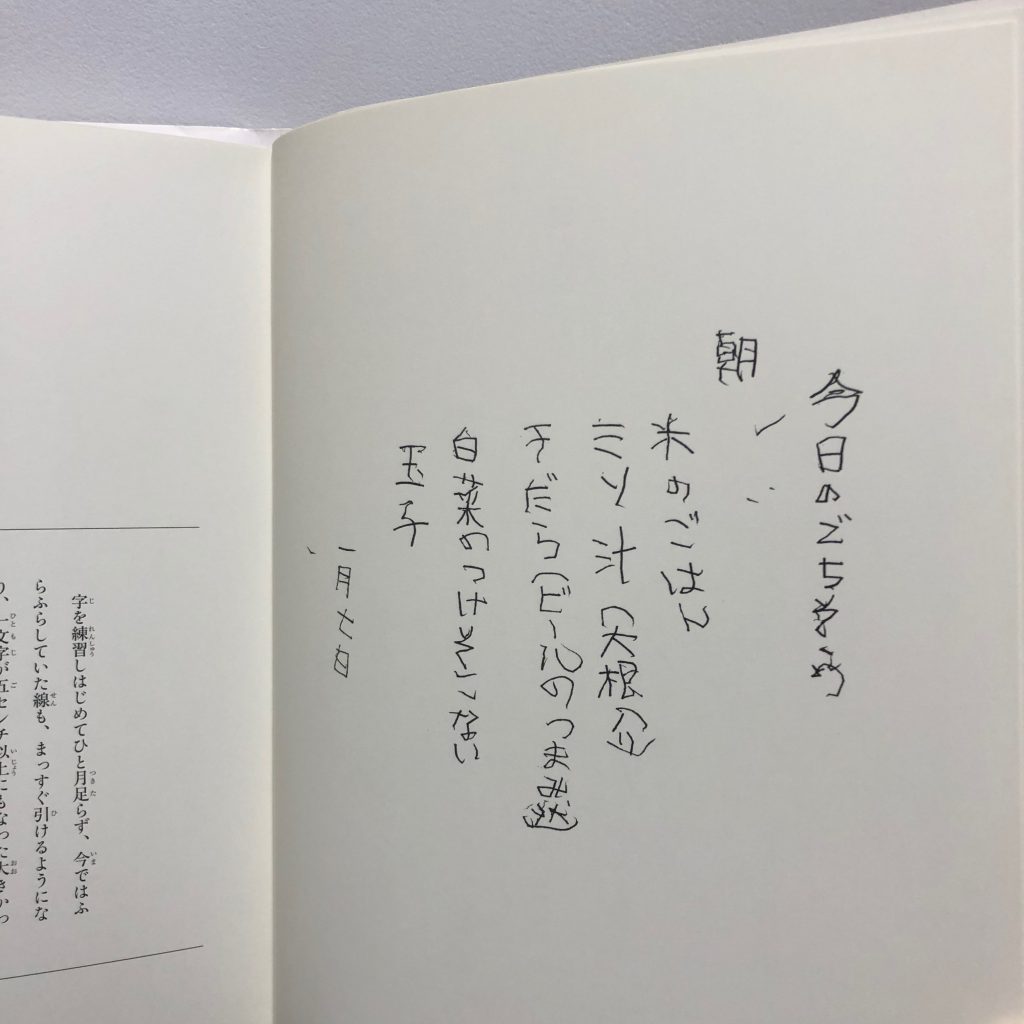 今日のごちそう
朝
米のごはん
ミソ汁(大根入り)
干だら(ビールのつまみ
白菜のつけそこない
玉子
一月七日
字を練習しはじめてひと月足らず、今ではふ
らふらしていた線も、まっすぐ引けるようにな
り、一文字が五センチ以上にもなった大きかっ